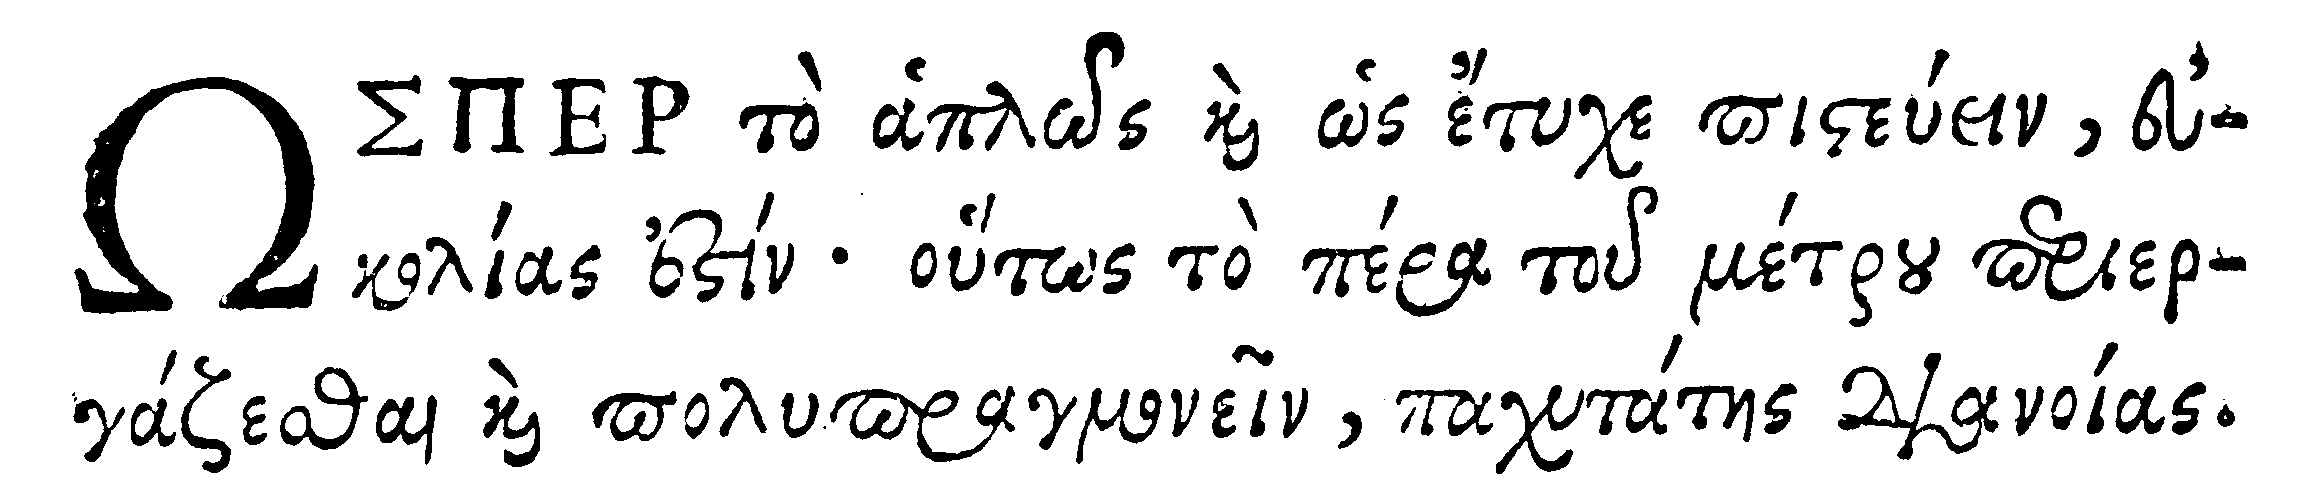 ΩΣΠΕΡ τὸ ἁπλῶς καὶ ὡς ἔτυχε πιστεύειν, εὐ-
κολίας ἐστίν· οὕτως τὸ πέρα τοῦ μέτρου περιερ-
γάζεσθαι καὶ πολυπραγμονεῖν, παχυτάτης διανοίας.